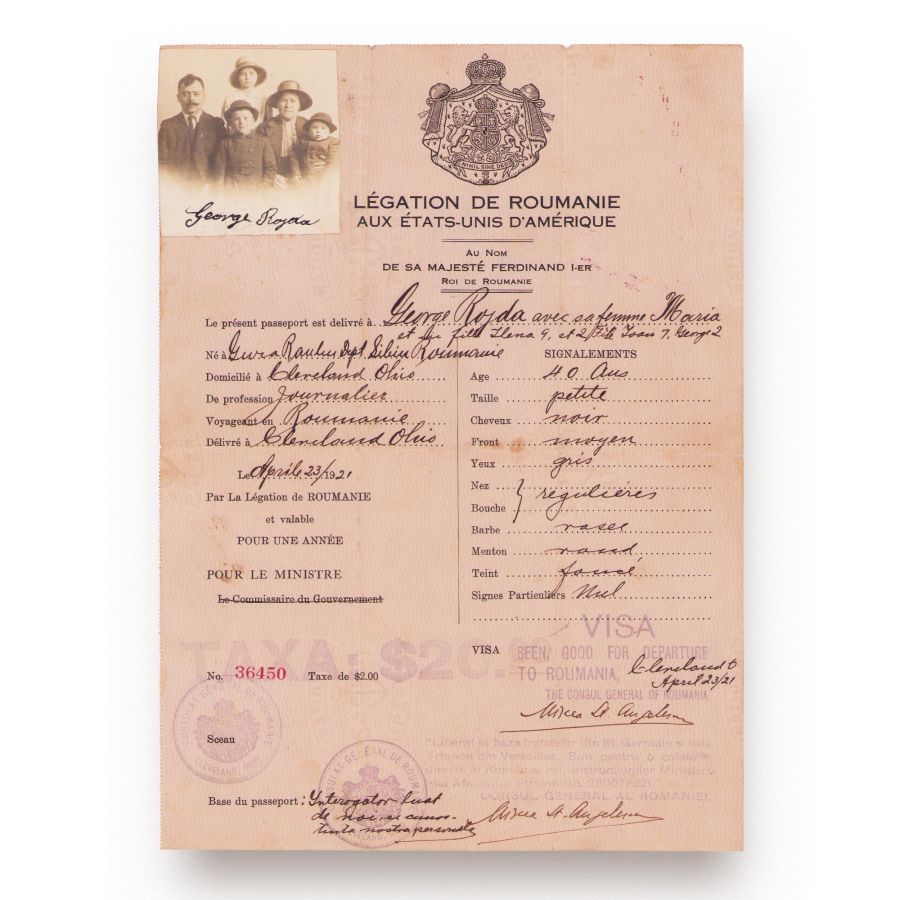 George Rojda
NIHIL SINE DEO
LÉGATION DE ROUMANIE
AUX ÉTATS-UNIS D'AMÉRIQUE
AU NOM
DE SA MAJESTÉ FERDINAND I-ER
ROI DE ROUMANIE
Le présent passeport est delivré à George Rojda avec sa femme Maria
et 9, et 2 Ioan 7, George 2
Né à Dept Sibiu Roumanie
Domicilié à Cleveland Ohio
De profession journalier
Voyageant en Roumanie
Délivré à Cleveland Ohio
Le April 23/1921
Par La Légation de ROUMANIE
et valable
POUR UNE ANNÉE
POUR LE MINISTRE
Le Commissaire du Gouvernement
SIGNALEMENTS
Age 40 Ans
Taille petite
Cheveux noir
Front moyen
Yeux gris
Nez
régulières
Bouche
Barbe rasee
Menton rond
Teint foncé
Signes Particuliers Nul
TAXA: $20.
No. 36450 Taxe de $2.00
VISA
VISA
SEEN, GOOD FOR DEPARTURE
TO ROUMANIA, Cleveland O
April 23/21
THE CONSUL GENERAL OF ROUMANIA
Mircea St. Angelescu
CONSULAT GENERAL DE ROUMANIE
CLEVELAND, OHIO
Sceau
"Liberat in baza tratatelor din St. Germain si dela
Trianon din Versailles. Bun pentru o calatorie
directa in Romania, rel. instructiunilor Ministerului
CONSUL GENERAL AL ROMANIEI.
Base du passeport: Interogator luat
de noi, si cunos-
tinta nostra personala
Mircea St. Angelescu